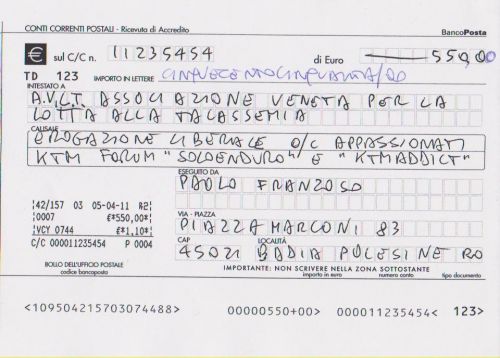 CONTI CORRENTI POSTALI - Ricevuta di Accredito BancoPosta
€ sul C/C n. 11235454 di Euro 550,00
TD 123 IMPORTO IN LETTERE CINQUECENTOCINQUANTA/00
INTESTATO A
A.V.L.T. ASSOCIAZIONE VENETA PER LA
LOTTA ALLA TALASSEMIA
CAUSALE
EROGAZIONE LIBERALE O/C APPASSIONATI
KTM FORUM "SOLOENDURO" E "KTMADDICT"
ESEGUITO DA
PAOLO FRANZOSO
VIA - PIAZZA
PIAZZA MARCONI 83
CAP LOCALITÀ
45021 BADIA POLESINE RO
|42/157 03 05-04-11 R2|
|0007 €*550,00*|
|VCY 0744 €*1,10*|
C/C 000011234454 P 0004
BOLLO DELL'UFFICIO POSTALE
codice bancoposta
IMPORTANTE: NON SCRIVERE NELLA ZONA SOTTOSTANTE
importo in euro numero conto tipo documento
<109504215703074488> 00000550+00> 000011235454< 123>